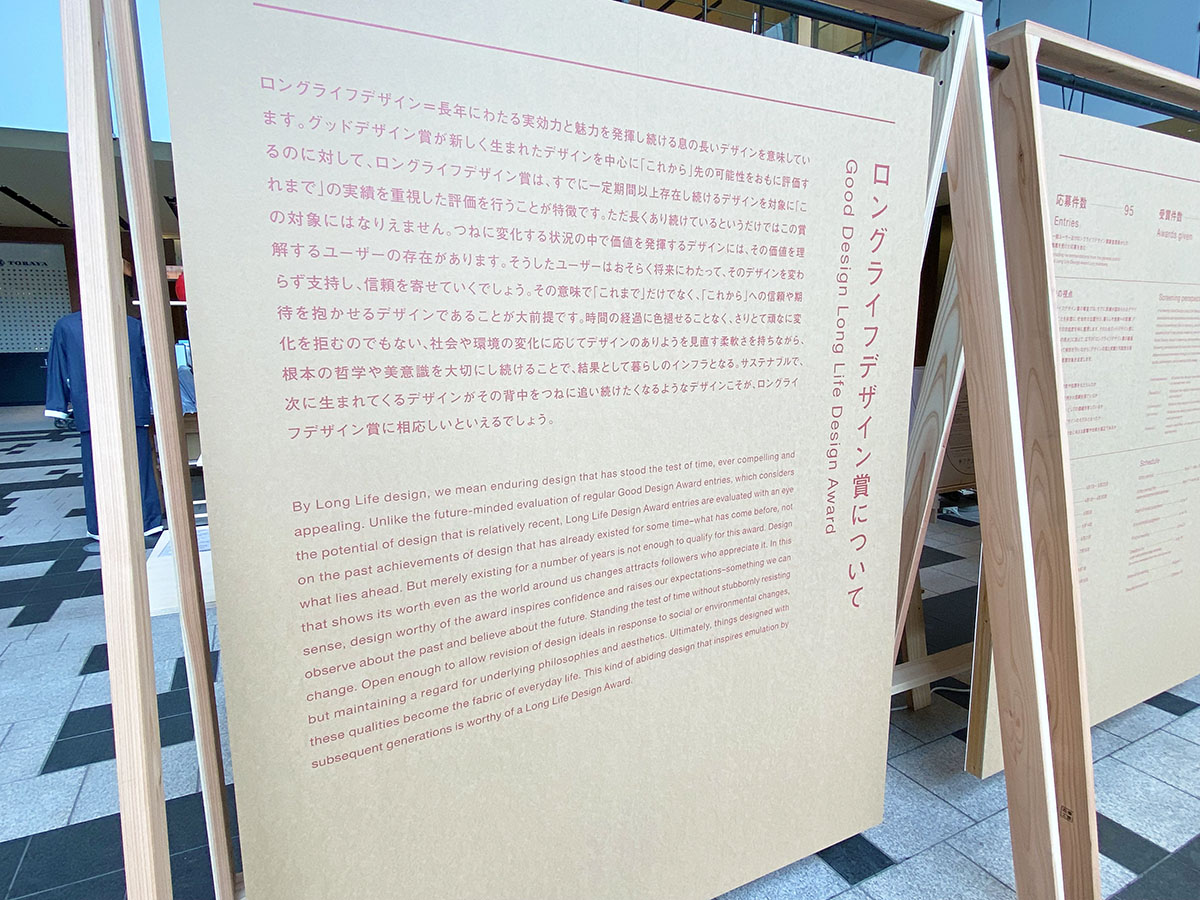 ロングライフデザイン賞について
Good Design Long Life Design Award
ロングライフデザイン＝長年にわたる実効力と魅力を発揮し続ける息の長いデザインを意味してい
ます。グッドデザイン賞が新しく生まれたデザインを中心に「これから」先の可能性をおもに評価す
るのに対して、ロングライフデザイン賞は、すでに一定期間以上存在し続けるデザインを対象に「こ
れまで」の実績を重視した評価を行うことが特徴です。ただ長くあり続けているというだけではこの賞
の対象にはなりえません。つねに変化する状況の中で価値を発揮するデザインには、その価値を理
解するユーザーの存在があります。そうしたユーザーはおそらく将来にわたって、そのデザインを変わ
らず支持し、信頼を寄せていくでしょう。その意味で「これまで」だけでなく、「これから」への信頼や期
待を抱かせるデザインであることが大前提です。時間の経過に色褪せることなく、さりとて頑なに変
化を拒むのでもない、社会や環境の変化に応じてデザインのありようを見直す柔軟さを持ちながら、
根本の哲学や美意識を大切にし続けることで、結果として暮らしのインフラとなる。サステナブルで、
次に生まれてくるデザインがその背中をつねに追い続けたくなるようなデザインこそが、ロングライ
フデザイン賞に相応しいといえるでしょう。
By Long Life design, we mean enduring design that has stood the test of time, ever compelling and
appealing. Unlike the future-minded evaluation of regular Good Design Award entries, which considers
the potential of design that is relatively recent, Long Life Design Award entries are evaluated with an eye
on the past achievements of design that has already existed for some time–what has come before, not
what lies ahead. But merely existing for a number of years is not enough to qualify for this award. Design
that shows its worth even as the world around us changes attracts followers who appreciate it. In this
sense, design worthy of the award inspires confidence and raises our expectations–something we can
observe about the past and believe about the future. Standing the test of time without stubbornly resisting
change. Open enough to allow revision of design ideals in response to social or environmental changes,
but maintaining a regard for underlying philosophies and aesthetics. Ultimately, things designed with
these qualities become the fabric of everyday life. This kind of abiding design that inspires emulation by
subsequent generations is worthy of a Long Life Design Award.
TORAYA
応募件数 95
Entries
受賞件数
Awards given
Schedule